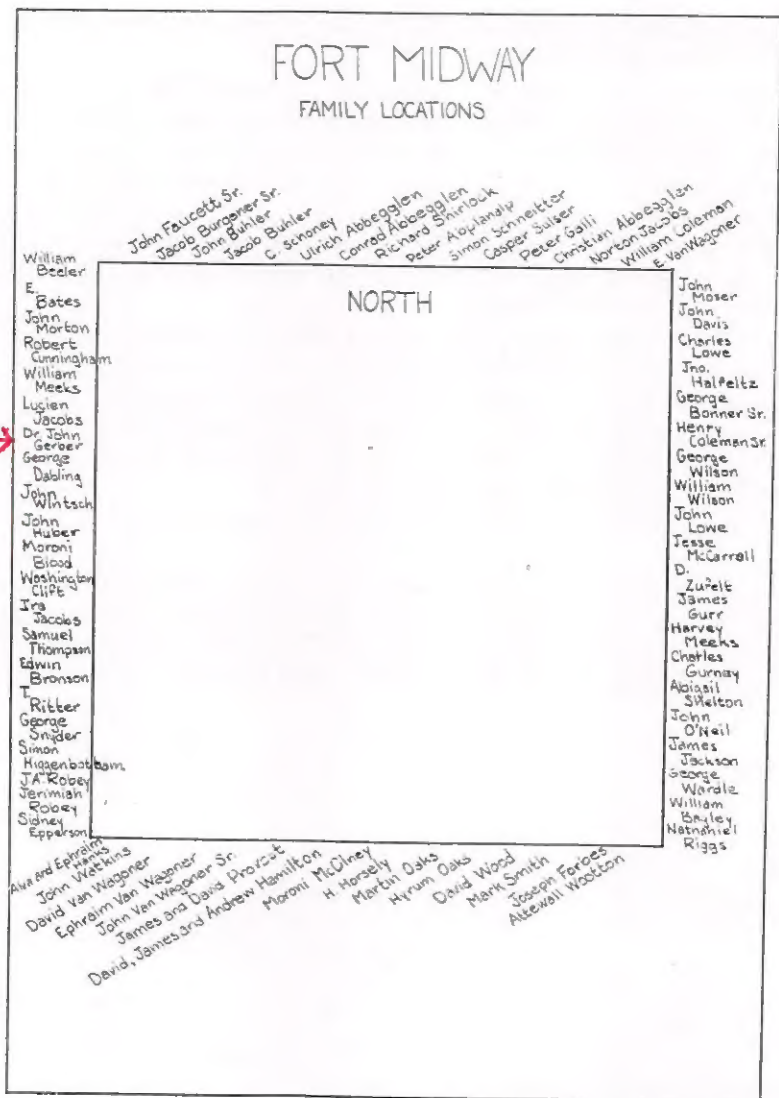 FORT MIDWAY
FAMILY LOCATIONS
John Faucett Sr.
Jacob Burgener Sr.
John Buhler
Jacob Buhler
C. Schoney
Ulrich Abbegglen
Conrad Abbegglen
Richard Shirlock
Peter Abplanalp
Simon Schneitter
Casper Sulser
Peter Galli
Christian Abbegglen
Norton Jacobs
William Coleman
E. VanWagoner
NORTH
William
Beeler
E.
Bates
John
Morton
Robert
Cunningham
William
Meeks
Lucien
Jacobs
Dr. John
Gerber
George
Dabling
John
Wintsch
John
Huber
Moroni
Blood
Washington
Clift
Ira
Jacobs
Samuel
Thompson
Edwin
Bronson
T.
Ritter
George
Snyder
Simon
Higgenbotham
J.A. Robey
Jerimiah
Robey
Sidney
Epperson
John
Moser
John
Davis
Charles
Lowe
Jno.
Halfeltz
George
Bonner Sr.
Henry
Coleman Sr.
George
Wilson
William
Wilson
John
Lowe
Jesse
McCarrall
D.
Zufelt
James
Gurr
Harvey
Meeks
Charles
Gurnay
Abigail
Shelton
John
O'Neil
James
Jackson
George
Wardle
William
Bagley
Nathaniel
Riggs
Alva and Ephraim
Hanks
John Watkins
David Van Wagoner
Ephraim Van Wagoner
John Van Wagoner Sr.
James and David Provost
David, James and Andrew Hamilton
Moroni McOlney
H. Horsely
Martin Oaks
Hyrum Oaks
David Wood
Mark Smith
Joseph Forbes
Attewall Wootton